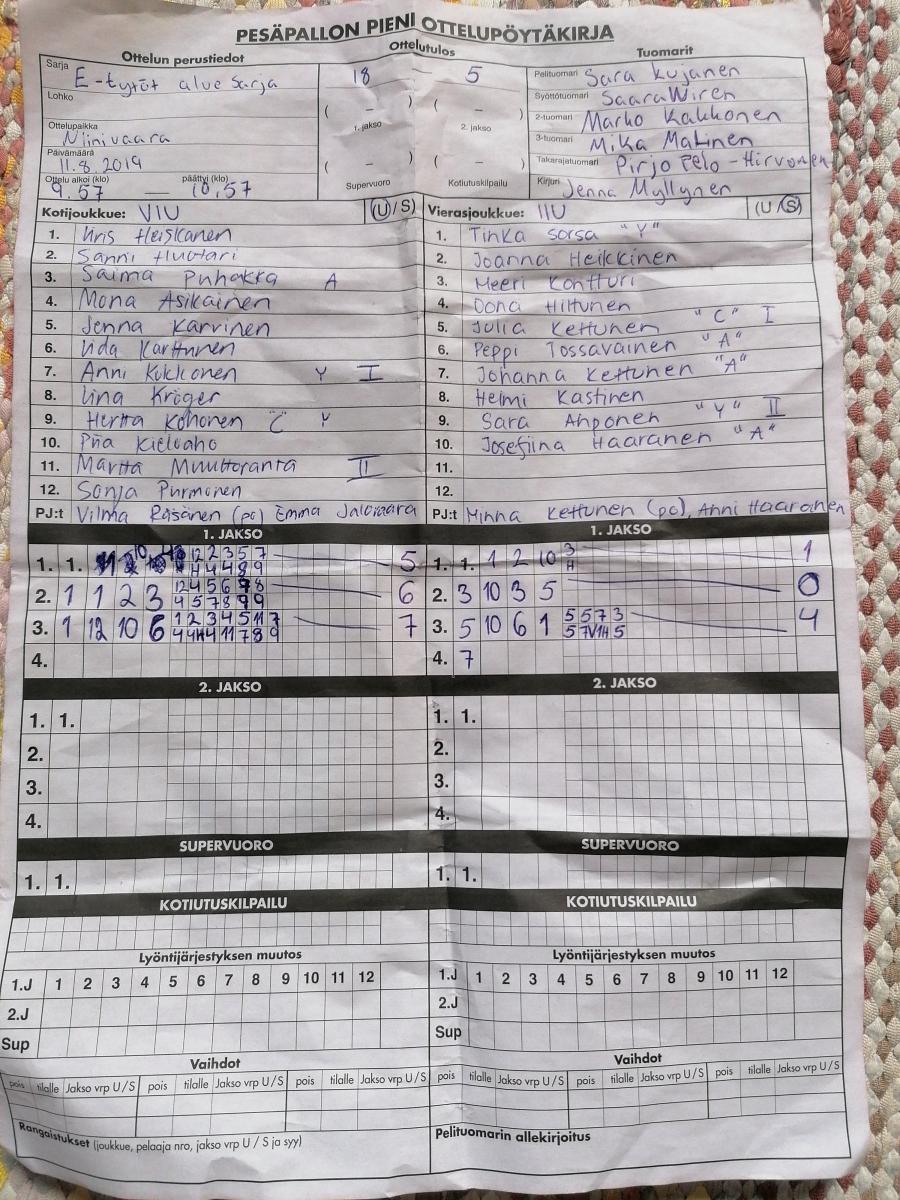 PESÄPALLON PIENI OTTELUPÖYTÄKIRJA
Ottelun perustiedot
Sarja E-tytöt alue sarja
Lohko
Ottelupaikka Niinivaara
Päivämäärä 11.8.2019
Ottelu alkoi (klo) päättyi (klo)
9.57 — 10.57
Ottelutulos
18 – 5
( – ) ( – )
1. jakso 2. jakso
( – ) ( – )
Supervuoro Kotiutuskilpailu
Tuomarit
Pelituomari Sara Kujanen
Syöttötuomari Saara Wiren
2-tuomari Marko Kakkonen
3-tuomari Mika Matinen
Takarajatuomari Pirjo Pelo-Hirvonen
Kirjuri Jenna Myllynen
Kotijoukkue: VIU (U/S)
1. Heiskanen
2. Sanni Huotari
3. Saima Puhakka A
4. Mona Asikainen
5. Jenna Karvinen
6. Iida Karttunen
7. Anni Kukkonen Y I
8. Iina Kröger
9. Hertta Kohonen "C" Y
10. Piia Kieloaho
11. Martta Muuttoranta II
12. Sonja Purmonen
PJ:t Vilma Räsänen (pc) Emma Jalovaara
Vierasjoukkue: IIU (U/S)
1. Tinka Sorsa "Y"
2. Joanna Heikkinen
3. Meeri Kontturi
4. Oona Hiltunen
5. Julia Kettunen "C" I
6. Peppi Tossavainen "A"
7. Johanna Kettunen "A"
8. Helmi Kastinen
9. Sara Ahponen "Y" II
10. Josefiina Haaranen "A"
11.
12.
PJ:t Minna Kettunen (pc), Anni Haaranen
1. JAKSO
1. 1. 12 2 3 5 7 5
4 4 8 9
2. 1 1 2 3 12 4 5 6 7 8 6
4 5 7 8 9 9
3. 1 12 10 6 1 2 3 4 5 11 7 7
4 4 4 11 7 8 9
4.
1. JAKSO
1. 1. 1 2 10 3 1
H
2. 3 10 3 5 0
3. 5 10 6 1 5 5 7 3 4
5 7 5
4. 7
2. JAKSO
1. 1.
2.
3.
4.
2. JAKSO
1. 1.
2.
3.
4.
SUPERVUORO
1. 1.
SUPERVUORO
1. 1.
KOTIUTUSKILPAILU
KOTIUTUSKILPAILU
Lyöntijärjestyksen muutos
1.J 1 2 3 4 5 6 7 8 9 10 11 12
2.J
Sup
Lyöntijärjestyksen muutos
1.J 1 2 3 4 5 6 7 8 9 10 11 12
2.J
Sup
Vaihdot
pois tilalle Jakso vrp U/S pois tilalle Jakso vrp U/S pois tilalle Jakso vrp U/S
Vaihdot
pois tilalle Jakso vrp U/S pois tilalle Jakso vrp U/S pois tilalle Jakso vrp U/S
Rangaistukset (joukkue, pelaaja nro, jakso vrp U / S ja syy)
Pelituomarin allekirjoitus